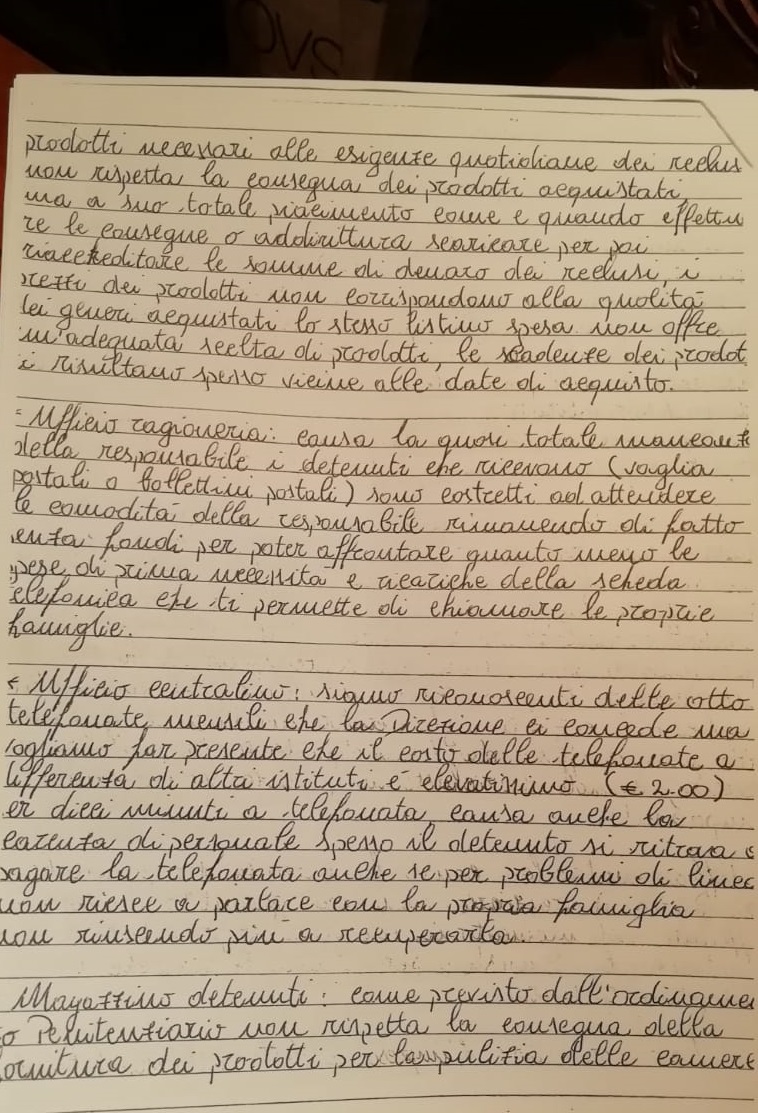 OVS
prodotti necessari alle esigenze quotidiane dei reclus
non rispetta la consegna dei prodotti acquistati,
ma a suo totale piacimento come e quando effettu
re le consegne o addirittura scaricare per poi
riaccreditare le somme di denaro dei reclusi, i
prezzi dei prodotti non corrispondono alla qualità
dei generi acquistati lo stesso listino spesa non offre
un'adeguata scelta di prodotti, le scadenze dei prodot
i risultano spesso vicine alle date di acquisto.
- Ufficio ragioneria: causa la quasi totale mancanz
della responsabile i detenuti che ricevono (vaglia
postali o bollettini postali) sono costretti ad attendere
le comodità della responsabile rimanendo di fatto
enza fondi per poter affrontare quanto meno le
spese di prima necessita e ricariche della scheda
telefonica che ti permette di chiamare le proprie
famiglie.
- Ufficio centralino: siamo riconoscenti delle otto
telefonate mensili che la Direzione ci concede ma
vogliamo far presente che il costo delle telefonate a
differenza di altri istituti è elevatissimo (€ 2.00)
er dieci minuti a telefonata, causa anche la
carenza di personale spesso il detenuto si ritrova a
pagare la telefonata anche se per problemi di linea
non riesce a parlare con la propria famiglia
non riuscendo più a recuperarla.
Magazzino detenuti: come previsto dall'ordinamen
o Penitenziario non rispetta la consegna della
fornitura dei prodotti per la pulizia delle camere